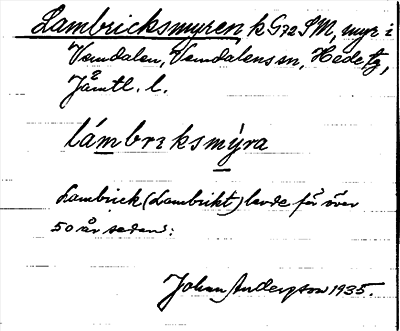 Lambricksmyren k G72 SM, myr i
Vemdalen, Vemdalens sn, Hede tg,
Jämtl. l.
lámbrıksmýra
Lambrick (Lambrikt) levde för över
50 år sedan:
Johan Anderzon 1935.